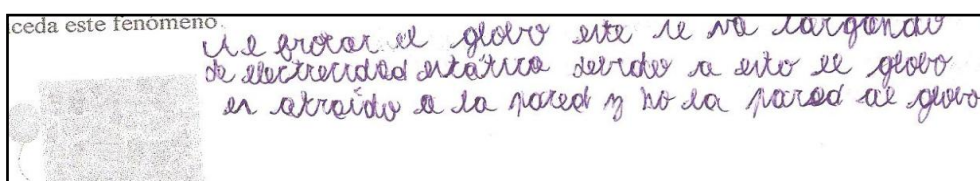 ceda este fenómeno.
Al frotar el globo este se va cargando
de electrecidad estática debido a esto el globo
es atraído a la pared y no la pared al globo